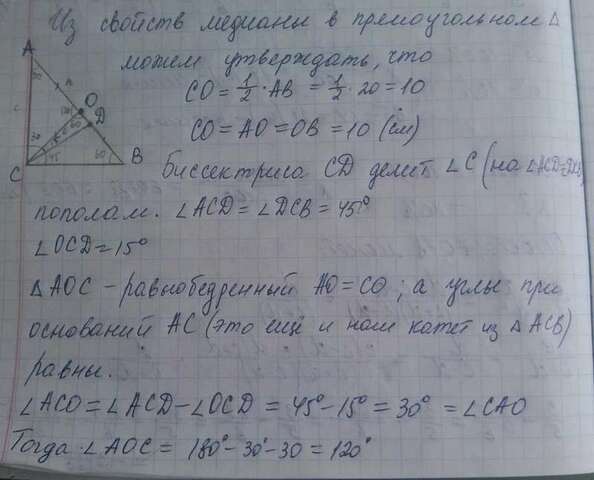 Из свойств медианы в прямоугольном Δ
можем утверждать, что
CO = 1/2 · AB = 1/2 · 20 = 10
CO = AO = OB = 10 (см)
Биссектриса CD делит ∠C (на ∠ACD=∠DCB)
пополам. ∠ACD = ∠DCB = 45°
∠OCD = 15°
Δ AOC – равнобедренный AO = CO ; а углы при
оснований AC (это ещё и наш катет из Δ ACB)
равны.
∠ACO = ∠ACD – ∠OCD = 45° – 15° = 30° = ∠CAO
Тогда ∠AOC = 180° – 30° – 30 = 120°
A
O
D
C
B
45
60